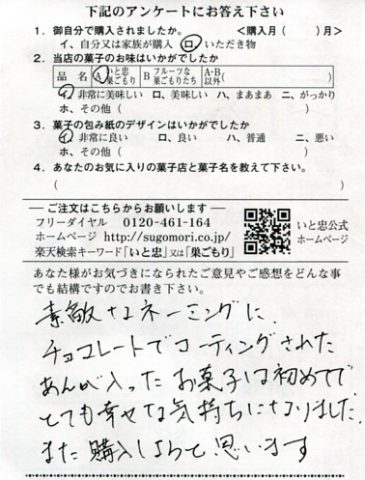 下記のアンケートにお答え下さい
1．御自分で購入されましたか。　＜購入月（　　）月＞
イ、自分又は家族が購入　ロ、いただき物
2．当店の菓子のお味はいかがでしたか
品　名　A いと忠巣ごもり　B フルーツな巣ごもりたち　A・B以外（　　　　）
イ、非常に美味しい　ロ、美味しい　ハ、まあまあ　ニ、がっかり
ホ、その他（　　　　　　　　　　）
3．菓子の包み紙のデザインはいかがでしたか
イ、非常に良い　　ロ、良い　　ハ、普通　　ニ、悪い
ホ、その他（　　　　　　　　　　）
4．あなたのお気に入りの菓子店と菓子名を教えて下さい。
（　　　　　　　　　　　　　　　）
― ご注文はこちらからお願いします ―
フリーダイヤル　0120-461-164
ホームページ　http://sugomori.co.jp/
楽天検索キーワード「いと忠」又は「巣ごもり」
いと忠公式
ホームページ
あなた様がお気づきになられたご意見やご感想をどんな事
でも結構ですのでお書き下さい。
素敵なネーミングに
チョコレートでコーティングされた
あんが入ったお菓子は初めてで
とても幸せな気持ちになりました。
また購入しようと思います